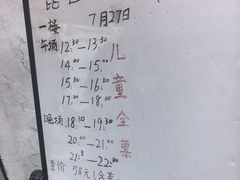 一楼 7月27日
午场 12:30—13:30
14:00—15:00
15:30—16:30
17:00—18:00
晚场 18:30—19:30
20:00—21:00
21:30—22:00
儿童全票
价 58元